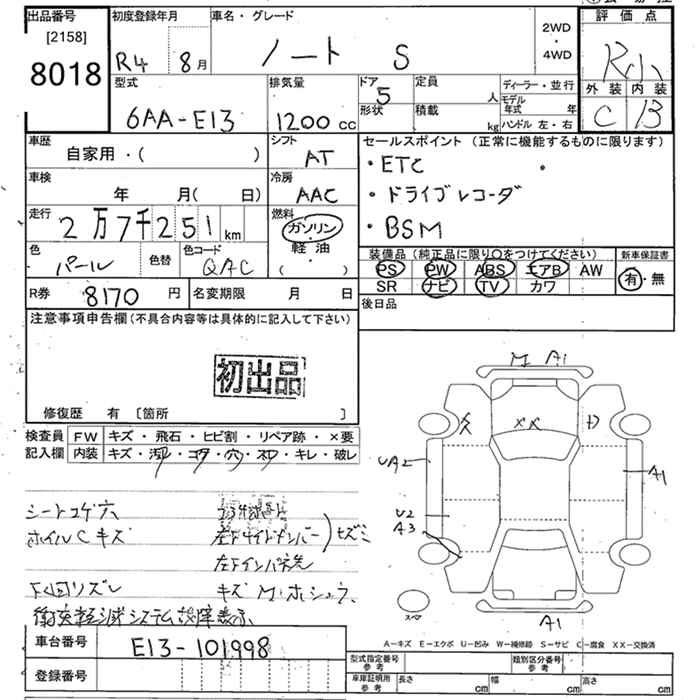 出品番号
[2158]
8018
初度登録年月
R4 8月
車名・グレード
ノート S
2WD
・
4WD
評価点
R小
外装 内装
C B
型式
6AA-E13
排気量
1200 cc
ドア
5
形状
定員
人
積載
kg
ディーラー・並行
モデル年式 年
ハンドル 左・右
車歴
自家用・( )
シフト
AT
セールスポイント (正常に機能するものに限ります)
・ETC
・ドライブレコーダ
・BSM
車検
年 月( 日)
冷房
AAC
走行
2万7千251km
燃料
ガソリン
軽油
( )
色
パール
色替
色コード
QAC
装備品 (純正品に限り○をつけてください)
PS PW ABS エアB AW
SR ナビ TV カワ
新車保証書
有・無
R券 8170 円
名変期限 月 日
後日品
注意事項申告欄 (不具合内容等は具体的に記入して下さい)
初出品
修復歴 有 [箇所 ]
検査員記入欄
FW キズ・飛石・ヒビ割・リペア跡・×要
内装 キズ・汚・コゲ・穴・スレ・キレ・破レ
シートコゲ穴
ホイルCキズ
下回リズレ
キズ
衝突軽減システム故障表示
M A1
UA2
U2
A3
A1
A1
スペア
A-キズ E-エクボ U-凹み W-補修跡 S-サビ C-腐食 XX-交換済
車台番号
E13-101998
登録番号
型式指定番号
参考
類別区分番号
参考
車庫証明用
参考
長さ cm
幅 cm
高さ cm